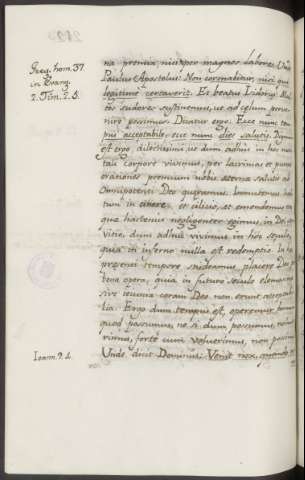 Greg. hom. 37
in Evang.
2. Tim. 2. 5.
na premia, nisi per magnos labores. Unde
Paulus Apostolus: Non coronabitur, nisi qui
legitime certaverit. Et beatus Isidorus:
sudores sustinemus, ut ad celum
possimus. Dicatur ergo: Ecce nunc
pus acceptabile, ecce nunc dies salutis.
est ergo, dilectissimi, ut dum adhuc in hoc mor
tali corpore vivimus, per lacrimas et
orationes premium nobis eterne salutis ab
Omnipotenti Deo queramus. Immutemus habi
tum in cinere et cilicio, et emendemus ea
que hactenus negligenter egimus, in Dei
vitio, dum adhuc vivimus in hoc seculo,
quia in inferno nulla est redemptio. In hoc
presenti tempore studeamus placere Deo
bona opera, quia in futuro seculo elemosine
sive ieiunia coram Deo non erunt acceptabi
lia. Ergo dum tempus est, operemur bonum
quod possumus, ne si dum possumus, nolue
rimus, forte cum voluerimus, non possimus.
Ioann. 9. 4.
Unde dicit Dominus: Venit nox, quando